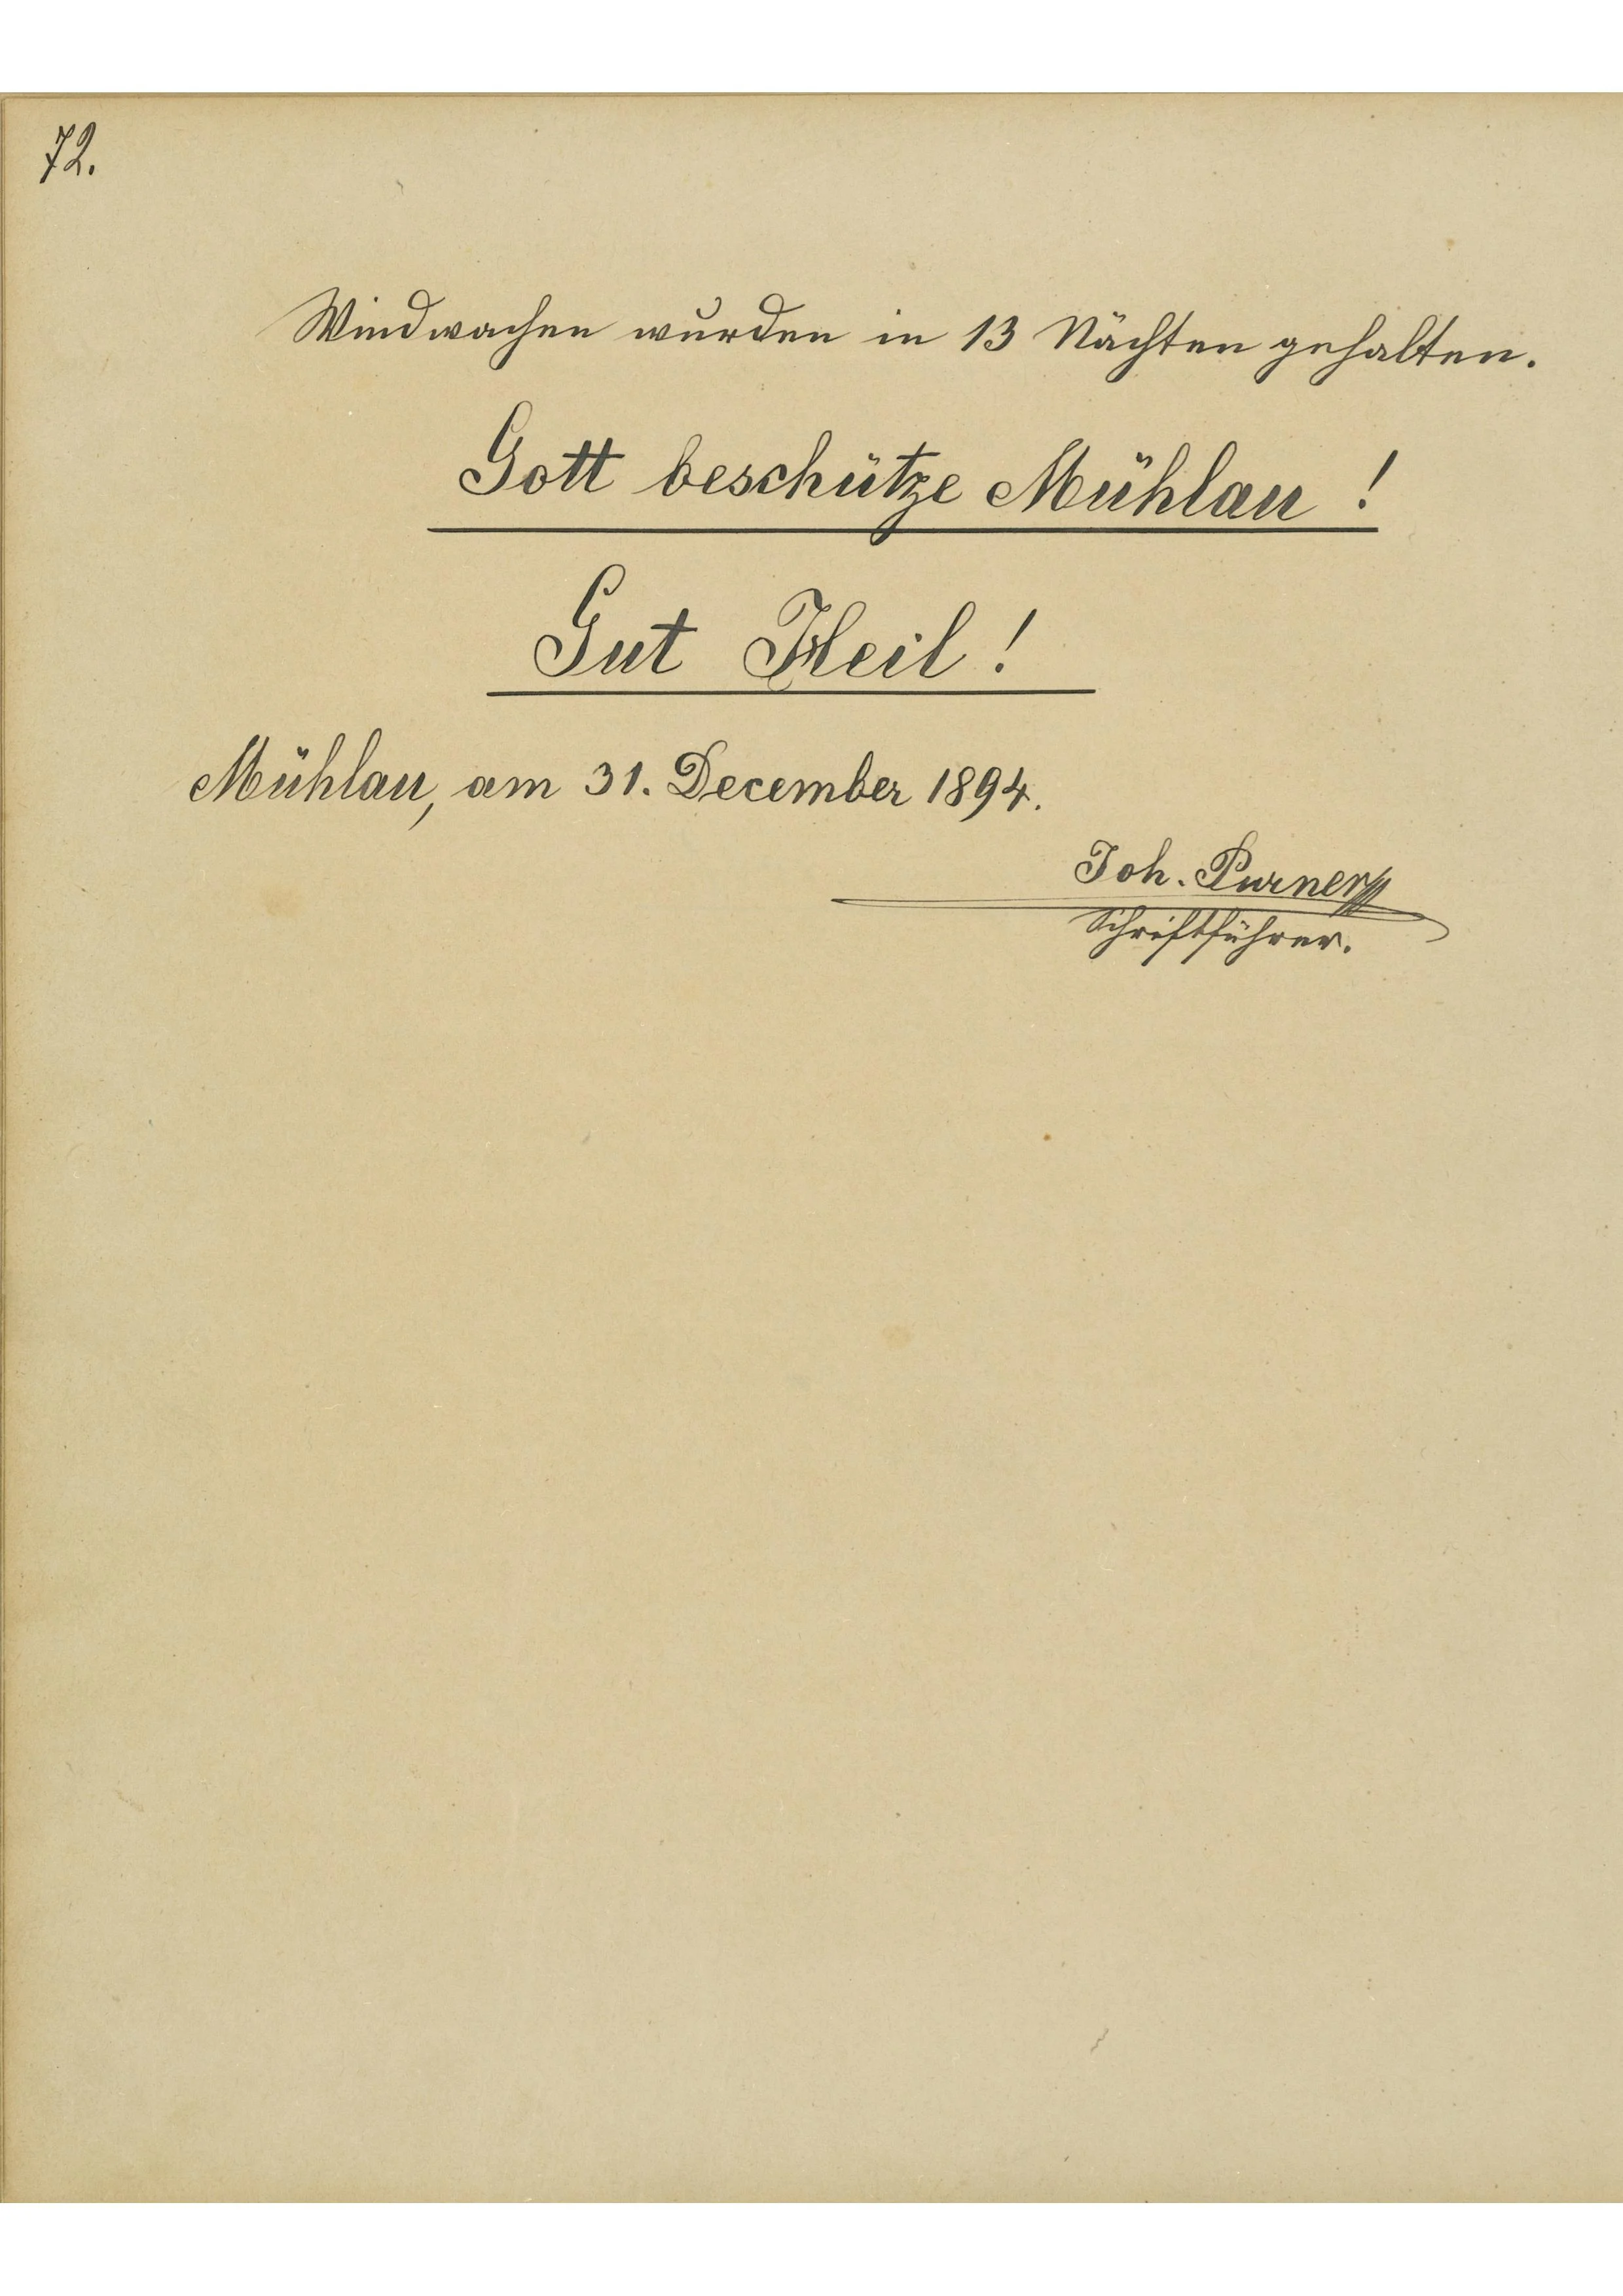 72.
Windwachen wurden in 13 Nächten gehalten.
Gott beschütze Mühlau !
Gut Heil !
Mühlau, am 31. December 1894.
Joh. Purner
Schriftführer.